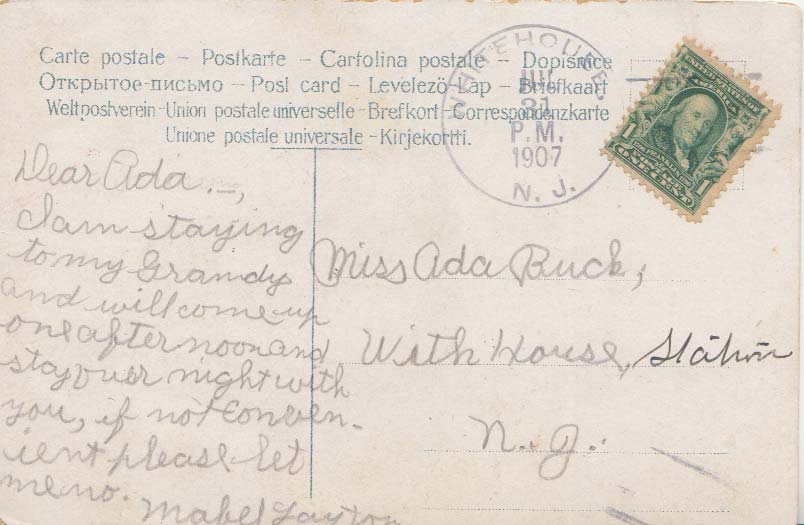 Carte postale – Postkarte – Cartolina postale – Dopisnice
Открытое-письмо – Post card – Levelezö-Lap – Briefkaart
Weltpostverein - Union postale universelle - Brefkort - Correspondenzkarte
Unione postale universale - Kirjekortti.
WHITEHOUSE,
JUL
31
P.M.
1907
N. J.
1
1
ONE CENT
Dear Ada.—,
I am staying
to my Grandy
and will come up
one afternoon and
stay over night with
you, if not conven-
ient please let
me no.
Mabel Layton
Miss Ada Buck,
With House, Station
N. J.